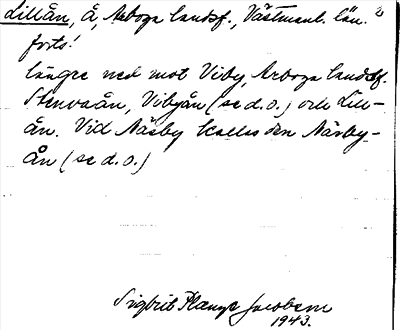 Lillån, å, Arboga landsf., Västmanl. län. 2
forts!
längre ned mot Viby, Arboga landsf.
Stenvaån, Vibyån (se d.o.) och Lill-
ån. Vid Näsby kallas den Näsby-
ån (se d.o.)
Sigbrit Plænge Jacobson
1943.